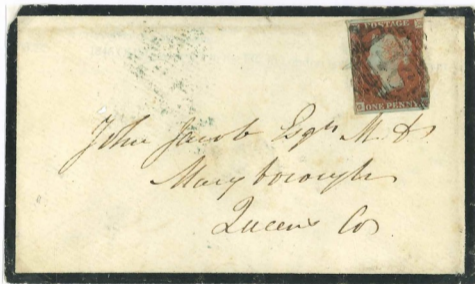 POSTAGE
ONE PENNY
John Jacob Esqr M.D.
Maryborough
Queens Co